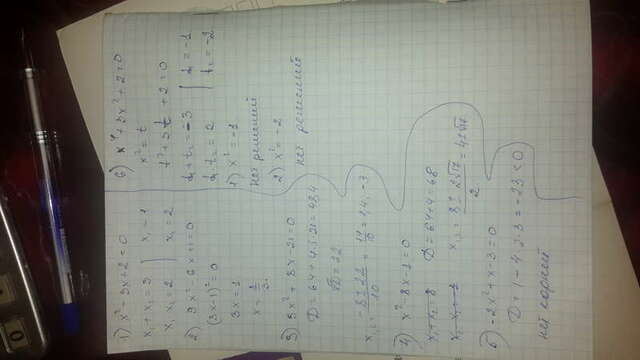 1) x² - 3x + 2 = 0
x₁ + x₂ = 3 | x₁ = 1
x₁ x₂ = 2 | x₂ = 2
2) 9x² - 6x + 1 = 0
(3x - 1)² = 0
3x = 1
x = 1/3
3) 5x² + 8x - 21 = 0
D = 64 + 4·5·21 = 484
√D = 22
x₁,₂ = (-8 ± 22)/10 = 14/10 = 1,4; -3
4) x² - 8x - 1 = 0
x₁ + x₂ = 8 D = 64 + 4 = 68
x₁ x₂ = -1 x₁,₂ = (8 ± 2√17)/2 = 4 ± √17
5) -2x² + x - 3 = 0
D = 1 - 4·2·3 = -23 < 0
нет корней
6) x⁴ + 3x² + 2 = 0
x² = t
t² + 3t + 2 = 0
t₁ + t₂ = -3 | t₁ = -1
t₁ t₂ = 2 | t₂ = -2
1) x² = -1
Нет решений
2) x² = -2
нет решений